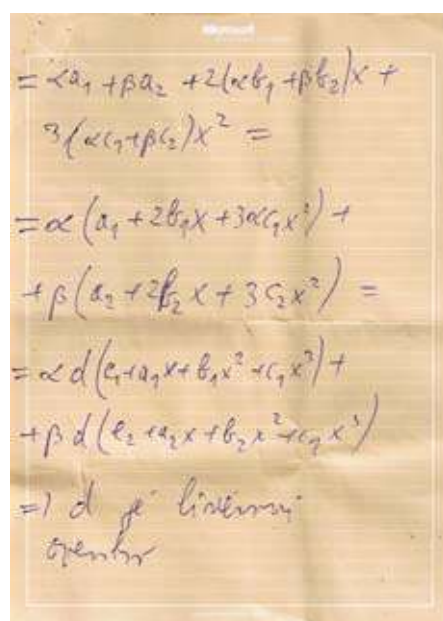 = αa₁ + βa₂ + 2(αb₁ + βb₂)x +
3(αc₁+βc₂)x² =
= α(a₁ + 2b₁x + 3αc₁x²) +
+ β(a₂ + 2b₂x + 3c₂x²) =
= α d(e₁+a₁x+b₁x²+c₁x³) +
+ β d(e₂+a₂x+b₂x²+c₁x³)
=) d je lineárny